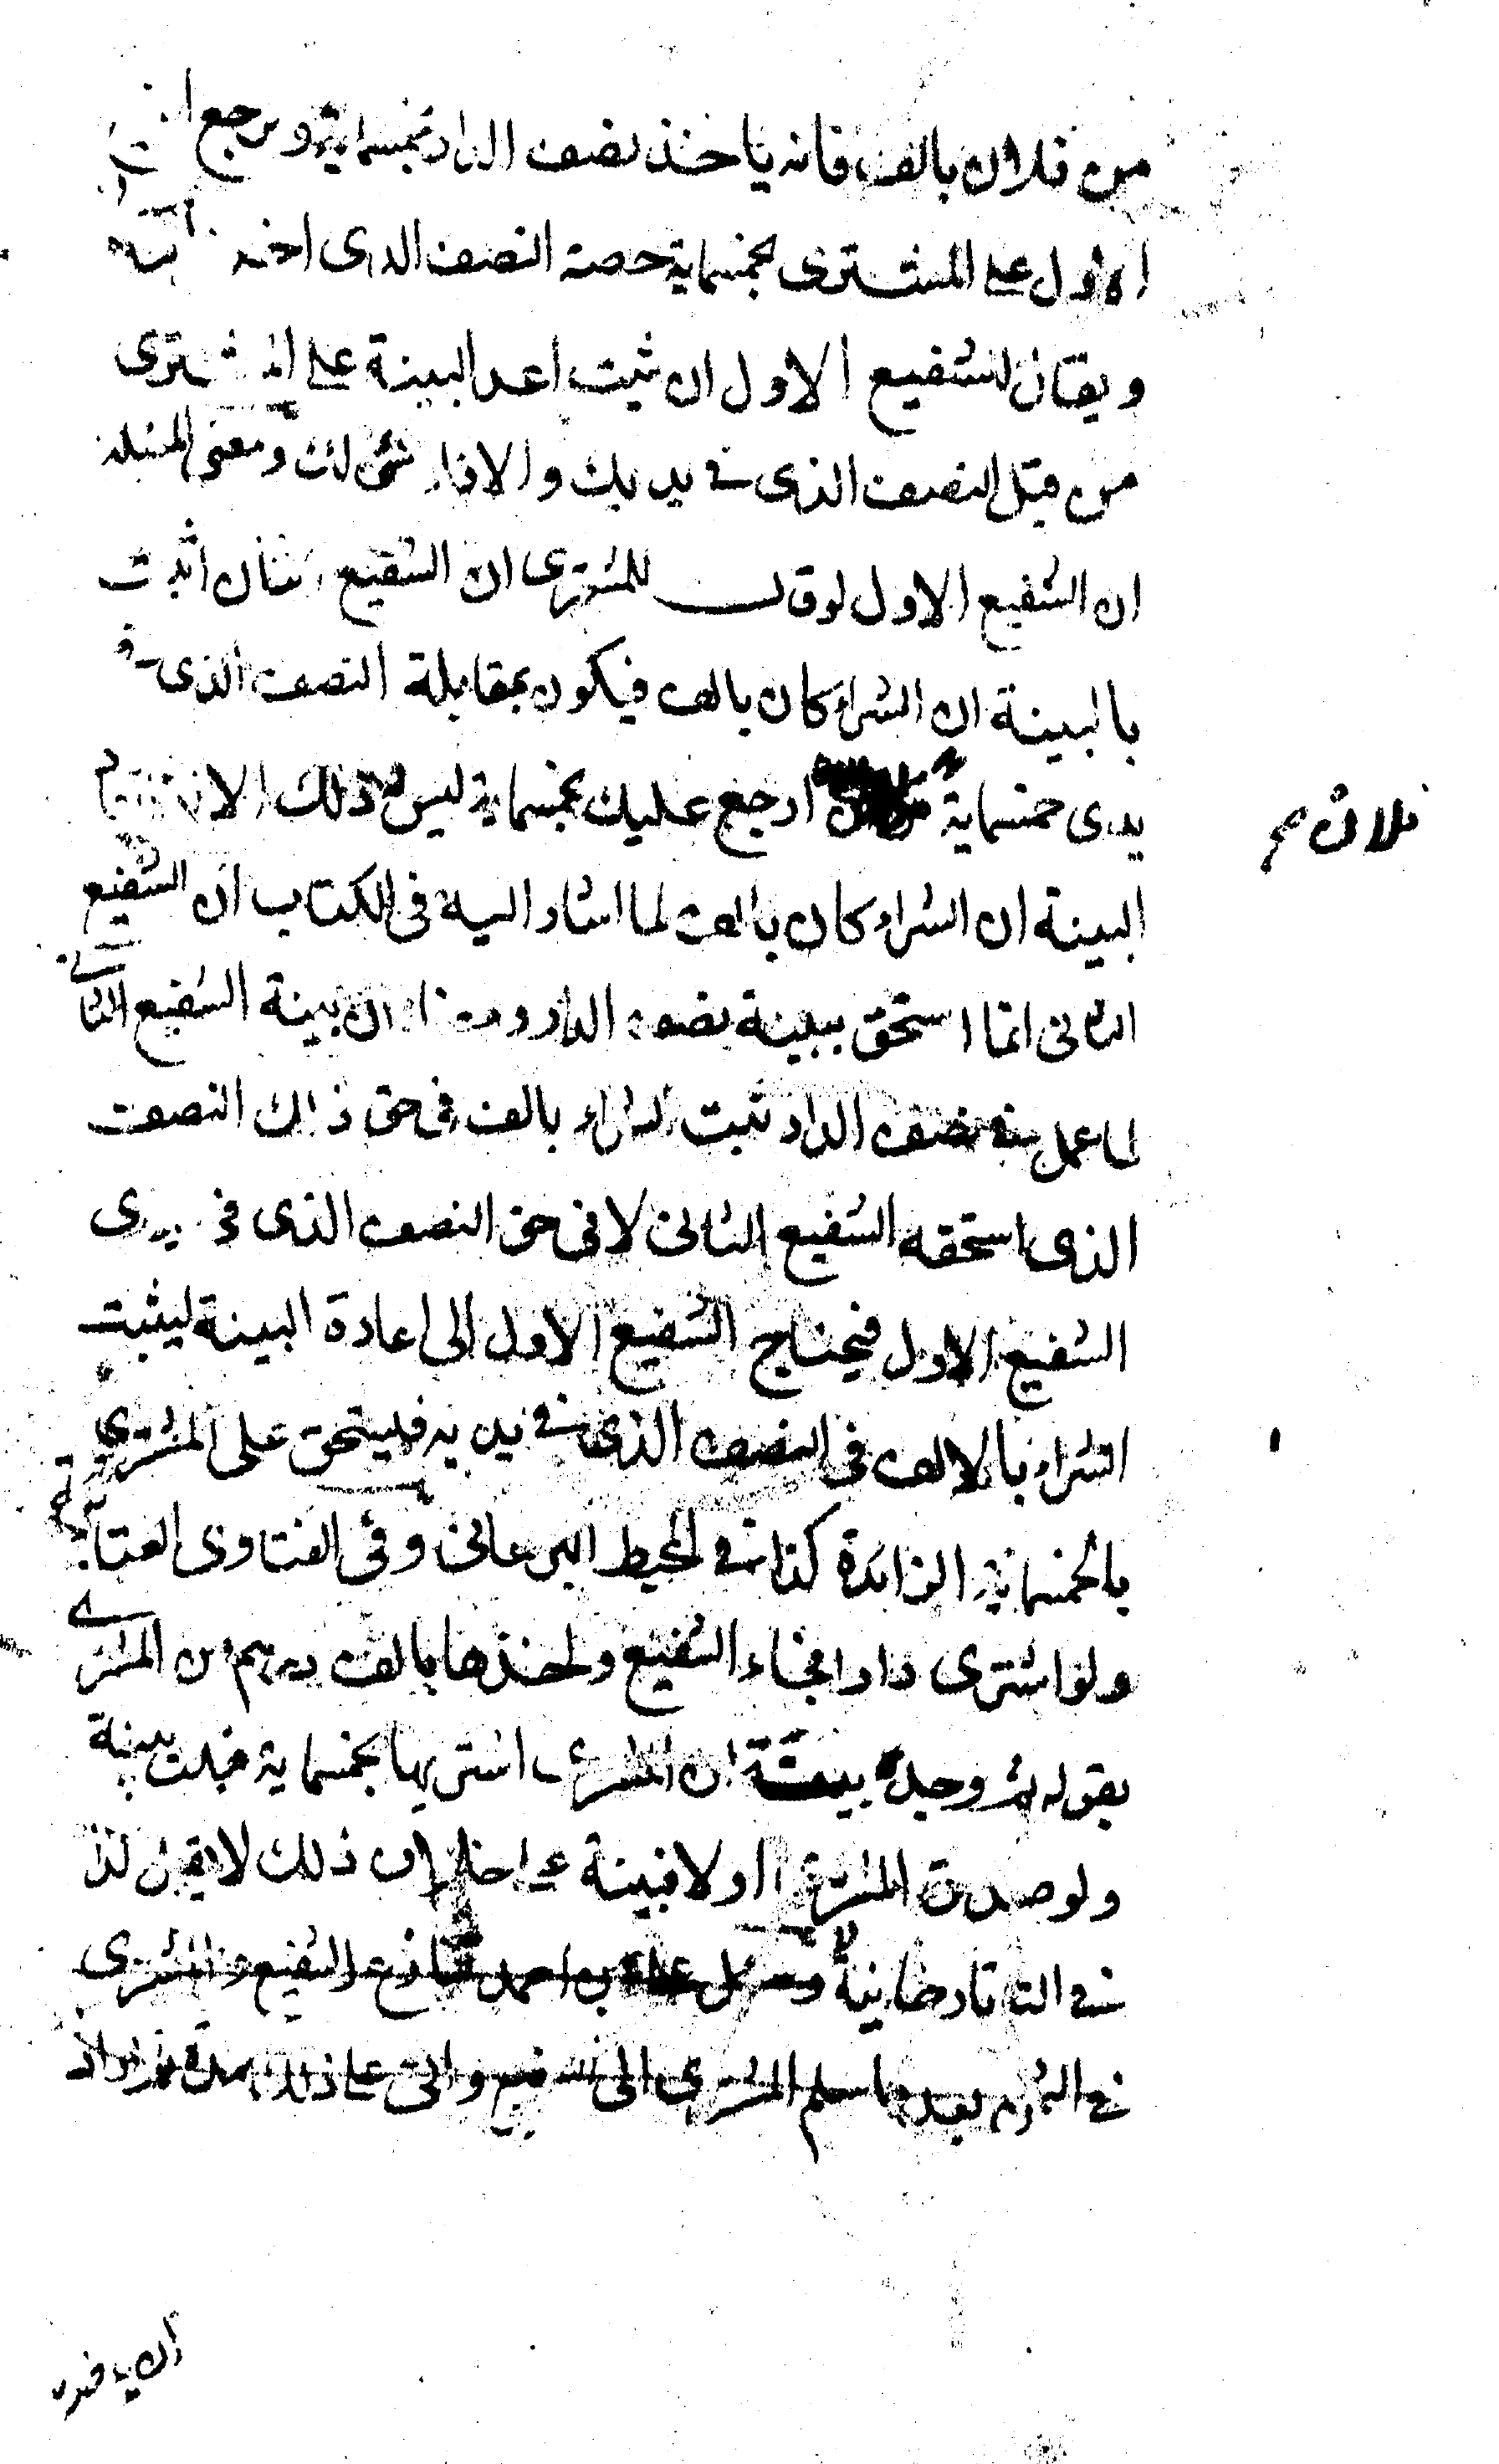 من فلان بالف فانه ياخذ نصف الدار بخمسماية ويرجع
الاول على المشترى بخمسماية حصة النصف الذى اخذ
ويقال للشفيع الاول ان شيت اعد البينة على المشترى
من قبل النصف الذى فى يديك والا فلا شى لك ومعنى المسئلة
ان الشفيع الاول لو قال للمشترى ان الشفيع الثانى اثبت
بالبينة ان الشراء كان بالف فيكون بمقابلة النصف الذى فى
يدى خمسماية فلان ارجع عليك بخمسماية ليس له ذلك الا ان يقيم
البينة ان الشراء كان بالف لما اشار اليه فى الكتاب ان الشفيع
الثانى انما استحق ببينة نصف الدار ومعناه ان بينة الشفيع الثانى
لما عمل فى نصف الدار ثبت الشراء بالف فى حق ذلك النصف
الذى استحقه الشفيع الثانى لا فى حق النصف الذى فى يدى
الشفيع الاول فيحتاج الشفيع الاول الى اعادة البينة ليثبت
الشراء بالالف فى النصف الذى فى يديه فيستحق على المشترى
بالخمسماية الزائدة كذا فى المحيط البرهانى وفى الفتاوى العتابية
ولو اشترى دارا فجاء الشفيع واخذها بالف درهم من المشترى
بقوله ثم وجد بينة ان المشترى اشتريها بخمسماية قبلت بينة
ولو صدق المشترى اولا فبينة على خلاف ذلك لا يقبل كذا
فى التتارخانية وسئل على بن احمد تنازع الشفيع والمشترى
فى الثمن بعد ما سلم المشترى الى الشفيع واتى على ذلك مدة
فلان صح